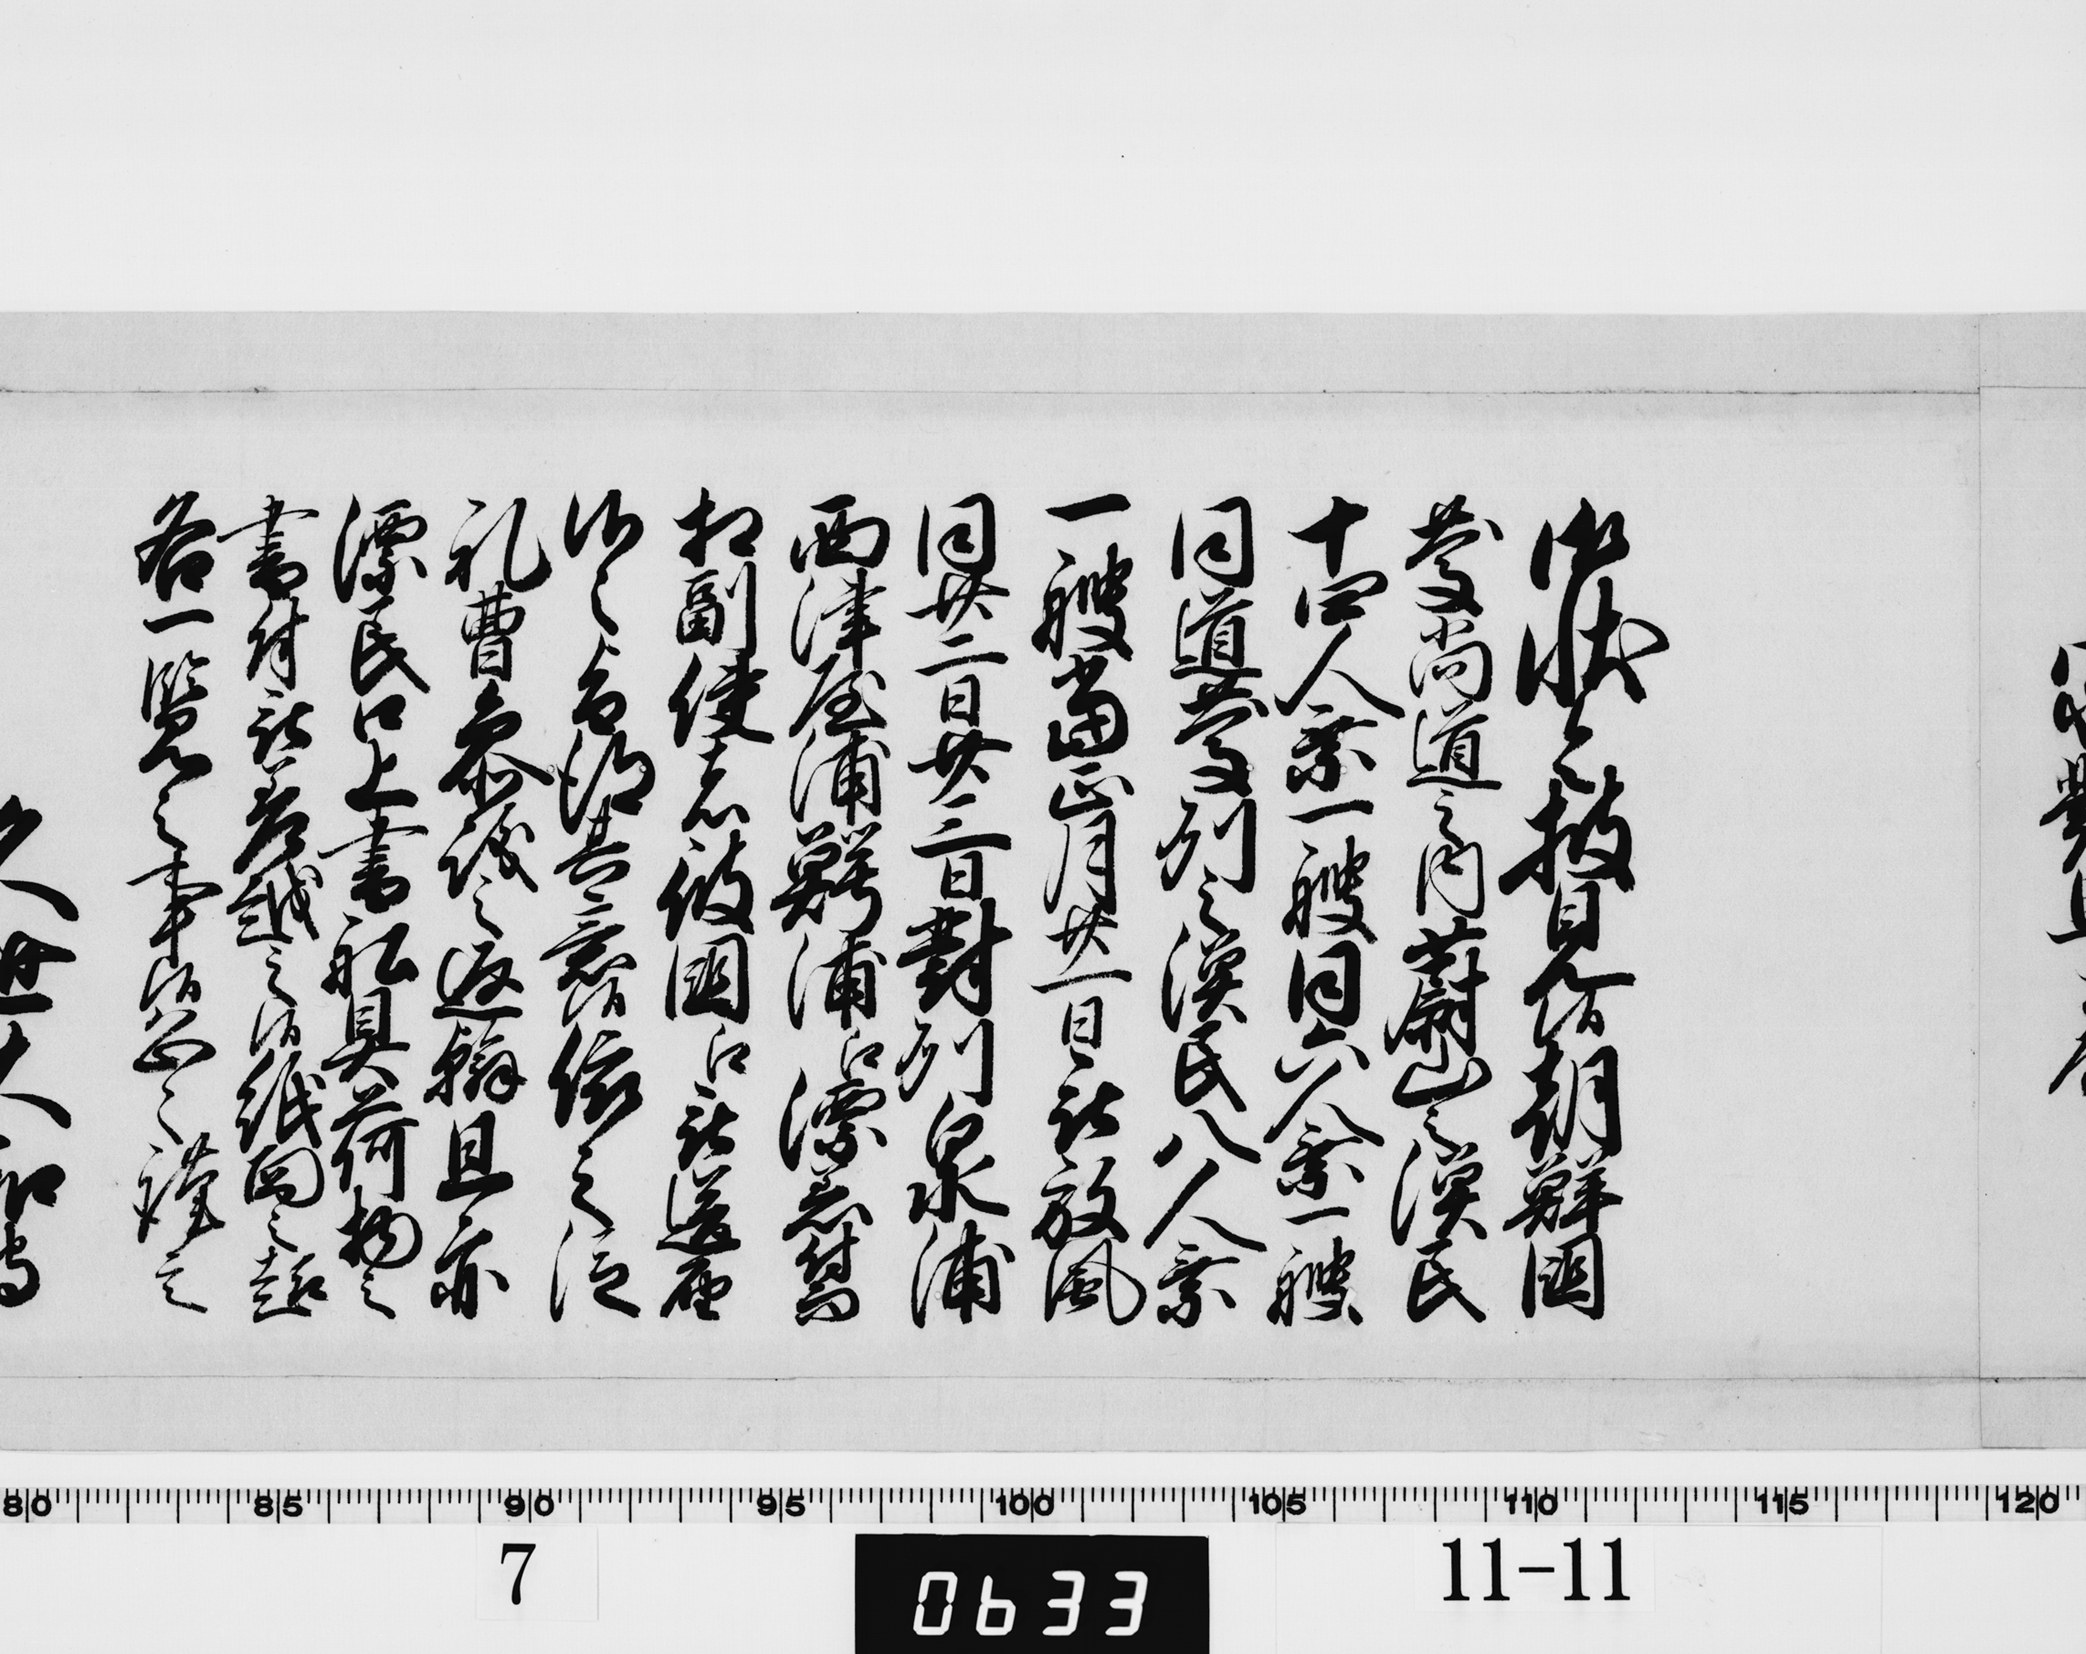 御状令披見候朝鮮国
慶尚道之内蔚山之漢民
十四人乗一艘同六人乗一艘
同道慶州之漢民八人乗
一艘当正月廿一日被放風
同廿二日廿三日対州泉浦
西津屋浦鰐浦江漂着付而
相副使者彼国江被送届
候之処得其意候依之従
礼曹参議之返翰且亦
漂民口上書船具荷物之
書付被差越之候紙面之趣
各一覧之事候恐々謹言
久世大和守
7
0633
11-11
80 85 90 95 100 105 110 115 120